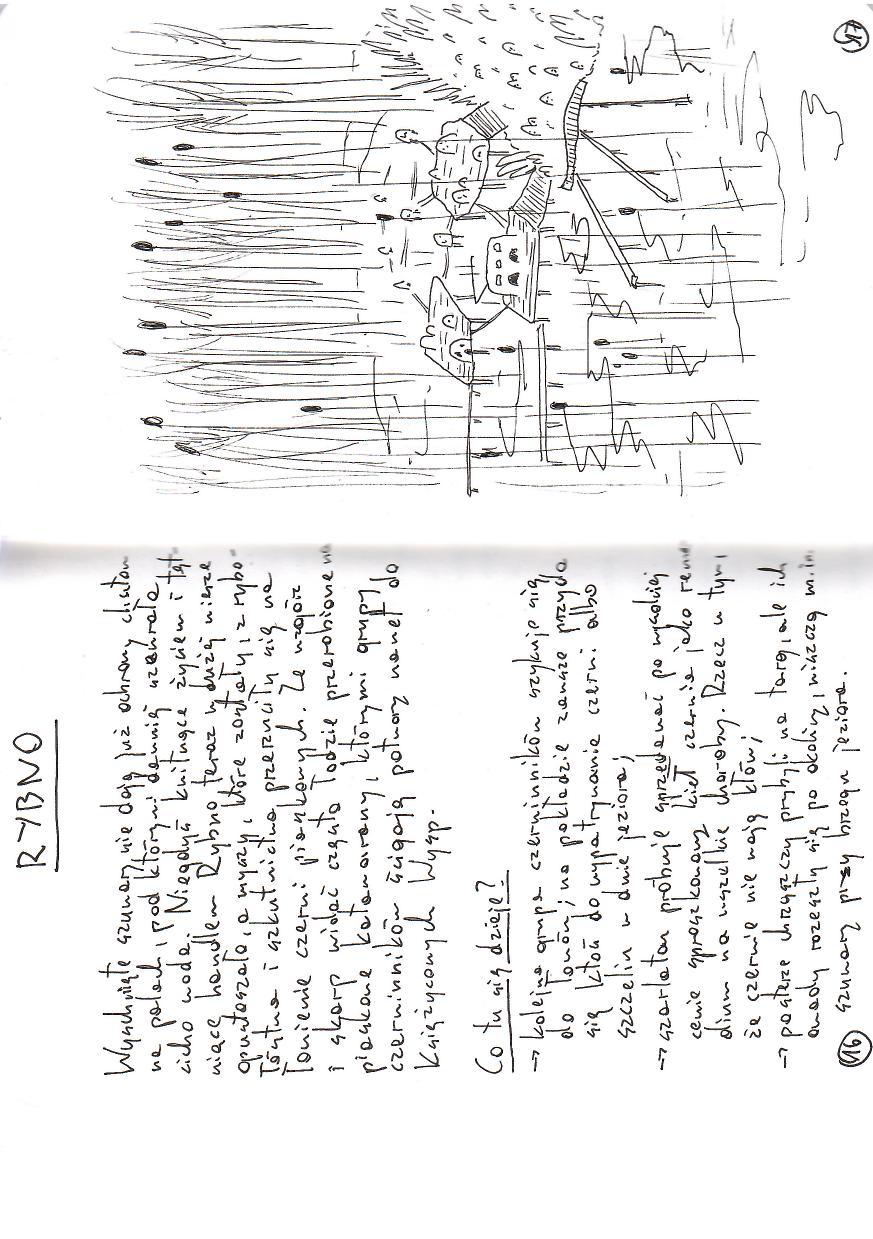 RYBNO
Wyschnięte szuwary nie dają już ochrony chatom
na palach, pod którymi dawniej szemrała
cicho woda. Niegdyś kwitnące życiem i tęt-
niące handlem Rybno teraz w dużej mierze
opustoszało, a myszy, które zostały, z rybo-
łóstwa i szkutnictwa przerzuciły się na
łowienie czerwi piaskowych. Ze wzgórz
i skarp widać często łodzie przerobione na
piaskowe katamarany, którymi grupy
czerwinników ścigają potwory nawet do
Księżycowych Wysp.
Co tu się dzieje?
→ kolejna grupa czerwinników szykuje się
do łowów; na pokładzie zawsze przyda
się ktoś do wypatrywania czerwi albo
szczelin w dnie jeziora;
→ szarlatan próbuje sprzedawać po wysokiej
cenie sproszkowany kieł czerwia jako reme-
dium na wszelkie choroby. Rzecz w tym,
że czerwie nie mają kłów;
→ pasterze chrząszczy przybyli na targ, ale ich
owady rozeszły się po okolicy, niszcząc m.in.
szuwary przy brzegu jeziora.
46
47